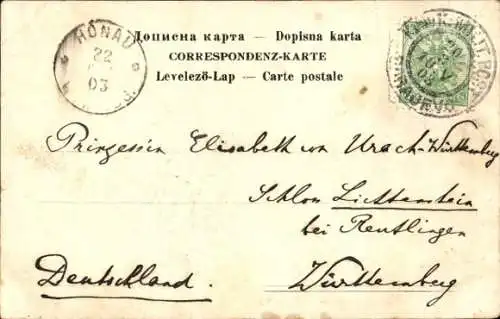 Дописна карта — Dopisna karta
CORRESPONDENZ-KARTE
Levelező-Lap — Carte postale
HONAU
22
03
Prinzessin Elisabeth von Urach-Württemberg
Schloss Lichtenstein
bei Reutlingen
Deutschland.
Württemberg